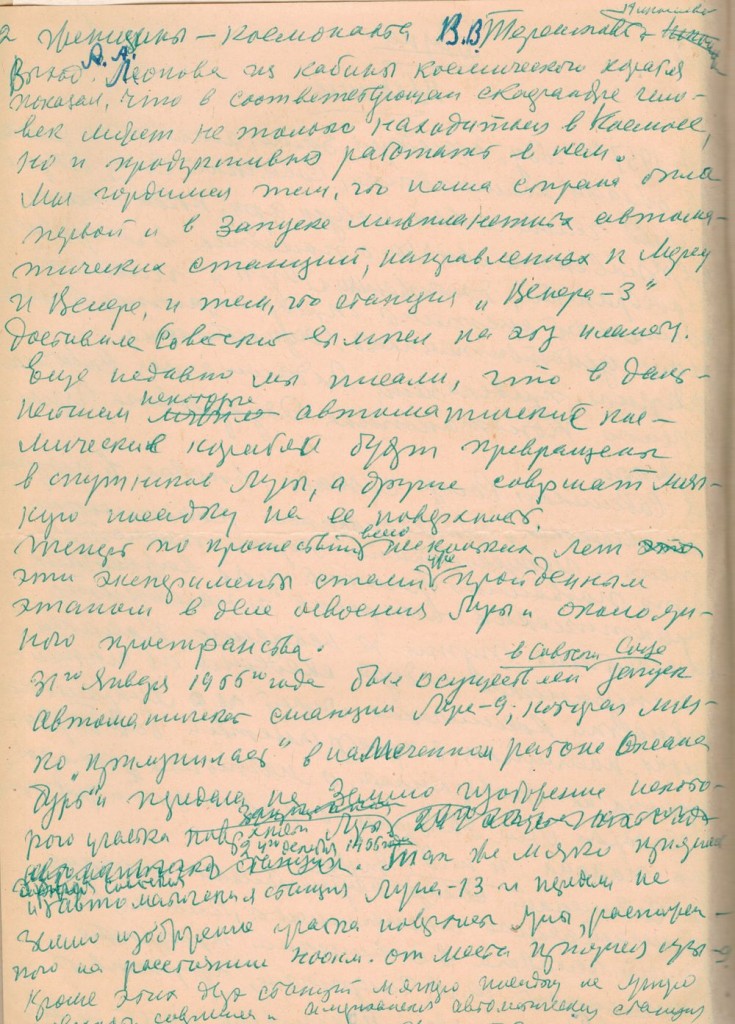 Женщины-космонавта В.В. Терешковой-
Выход А.А. Леонова из кабины космического корабля
показал, что в соответствующем скафандре чело-
век может не только находиться в Космосе,
но и продуктивно работать в нем.
Мы гордимся тем, что наша страна была
первой и в запуске межпланетных автома-
тических станций, направленных к Марсу
и Венере, и тем, что станция „Венера-3"
доставила Советский вымпел на эту планету.
Еще недавно мы писали, что в даль-
нейшем некоторые автоматические кос-
мические корабли будут превращены
в спутников Луны, а другие совершат мяг-
кую посадку на ее поверхность.
Теперь по прошествии всего нескольких лет
эти эксперименты стали уже пройденным
этапом в деле освоения Луны и окололун-
ного пространства.
31го Января 1966го года был осуществлен в Советском Союзе запуск
автоматической станции Луна-9, которая мяг-
ко „прилунилась" в намеченном районе Океана
Бурь и передала на Землю изображение некото-
рого участка поверхности Луны
24го декабря 1966го
станции. Так же мягко
автоматическая станция Луна-13 и передала на
Землю изображение участка поверхности Луны,
ного на расстоянии от места
Кроме этих двух станций мягкую посадку на
автоматических станций